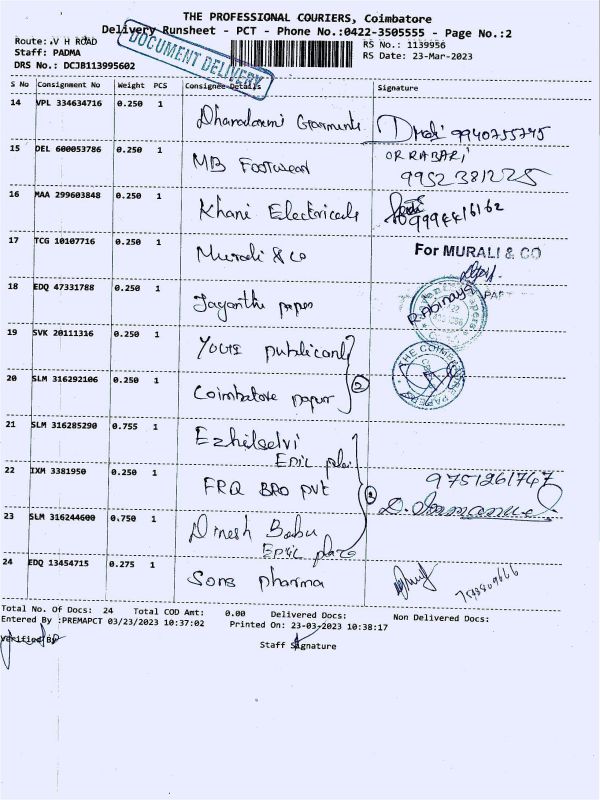 THE PROFESSIONAL COURIERS, Coimbatore
Delivery Runsheet - PCT - Phone No.:0422-3505555 - Page No.:2
Route: V H ROAD
RS No.: 1139956
Staff: PADMA
RS Date: 23-Mar-2023
DRS No.: DCJB113995602
DOCUMENT DELIVERY
S No Consignment No Weight PCS Consignee Details Signature
14 VPL 334634716 0.250 1 Dharadaxmi Garments 9940755745
15 DEL 600053786 0.250 1 MB Footwear ORRABARI 9952381225
16 MAA 299603848 0.250 1 Khani Electricals 9994416162
17 TCG 10107716 0.250 1 Murali & co For MURALI & CO
18 EDQ 47331788 0.250 1 Jayanthi paper R.Abinaya
19 SVK 20111316 0.250 1 Yours publicant
20 SLM 316292106 0.250 1 Coimbatore paper 2 THE COIMBATORE PAPERS
21 SLM 316285290 0.755 1 Ezhilselvi
22 IXM 3381950 0.250 1 FRQ BRO pvt 9751261747
23 SLM 316244600 0.750 1 Dinesh Babu
24 EDQ 13454715 0.275 1 Sons pharma
Total No. Of Docs: 24 Total COD Amt: 0.00 Delivered Docs: Non Delivered Docs:
Entered By :PREMAPCT 03/23/2023 10:37:02 Printed On: 23-03-2023 10:38:17
Verified By
Staff Signature